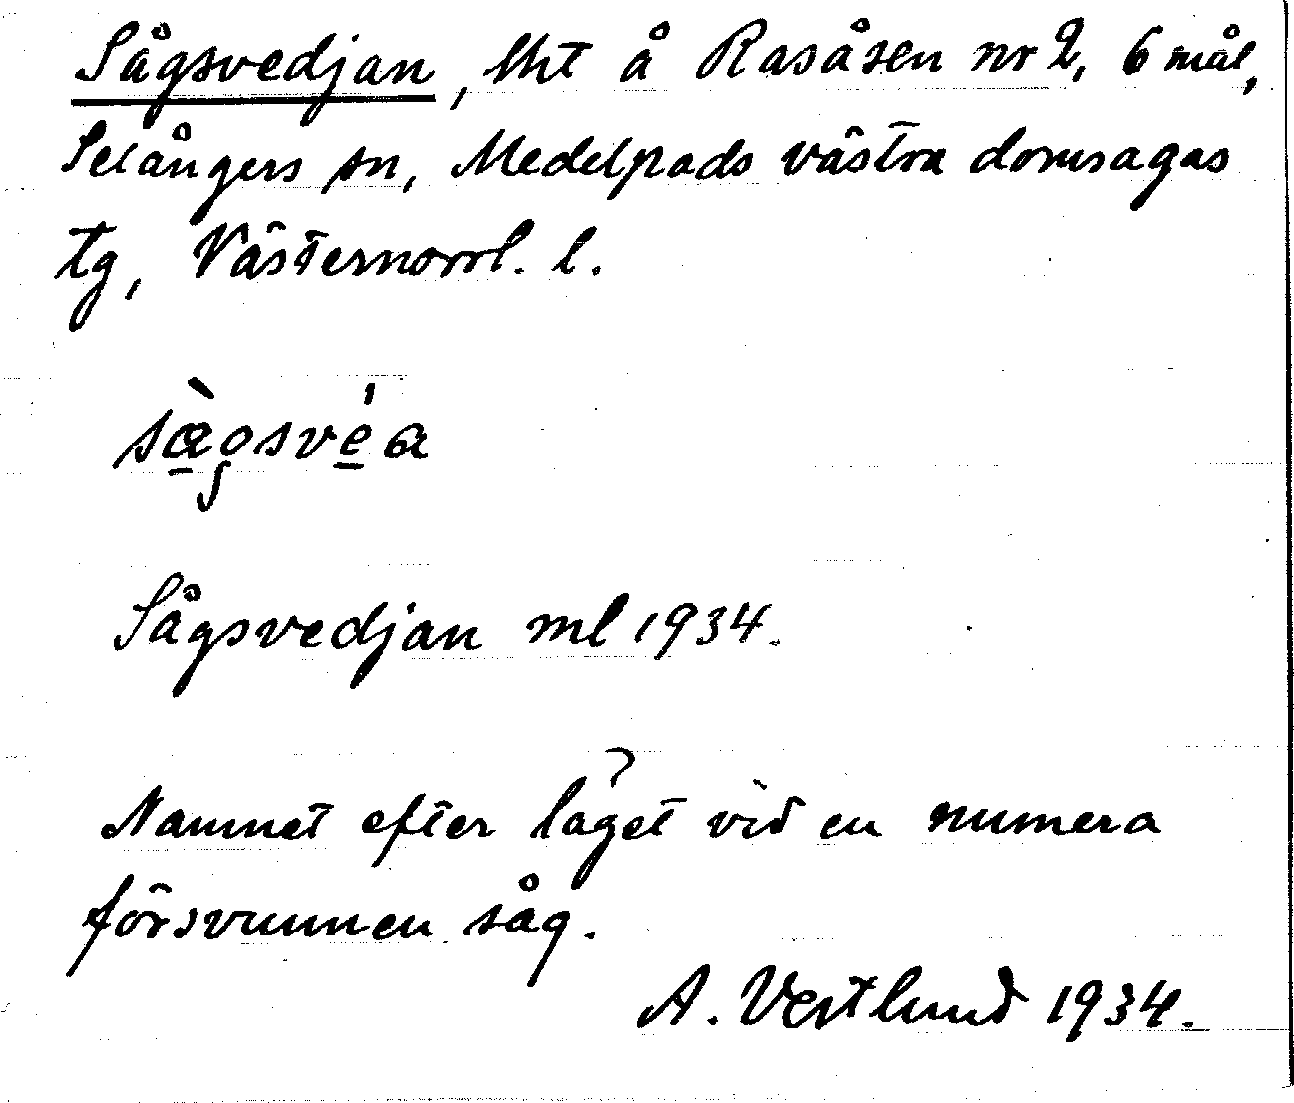 Sågsvedjan, lht å Rasåsen nr 2, 6 mål,
Selångers sn, Medelpads västra domsagas
tg, Västernorrl. l.
Sågsvedjan ml 1934.
Namnet efter läget vid en numera
försvunnen såg.
A. Vestlund 1934.